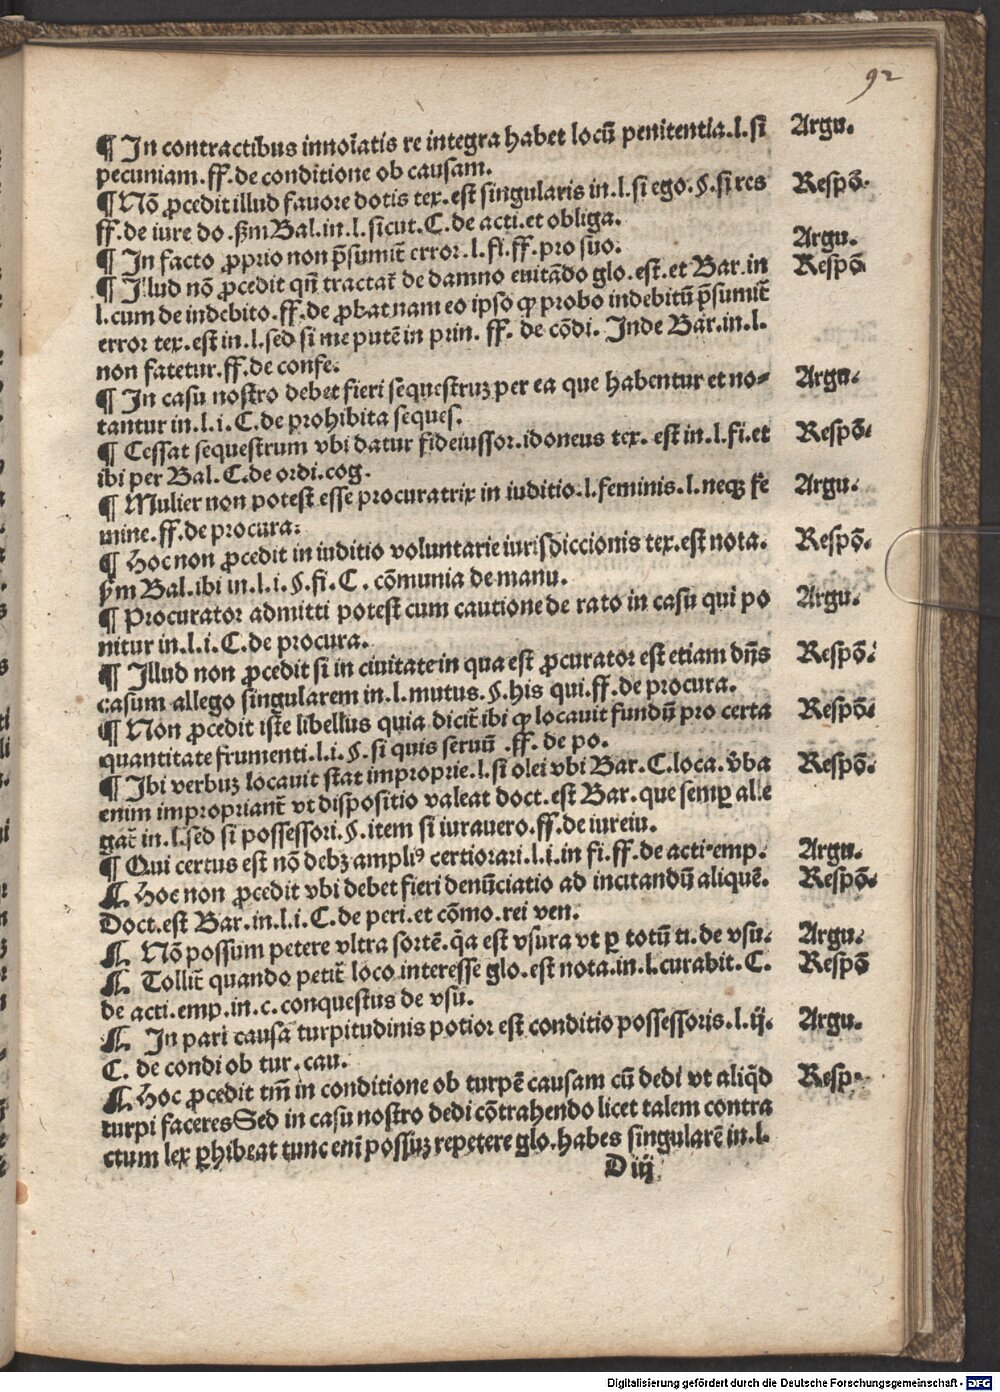 92
¶ In contractibus innoīatis re integra habet locū penitentia.l.si Argu.
pecuniam.ff.de conditione ob causam.
¶ Nō ꝓcedit illud fauore dotis tex.est singularis in.l.si ego.§.si res Respō.
ff.de iure do.ẜm Bal.in.l.sicut.C.de acti.et obliga.
¶ In facto ꝓprio non p̄sumit̄ error.l.fi.ff.pro suo. Argu.
¶ Illud nō ꝓcedit qn̄ tractat̄ de damno euitādo glo.est.et Bar.in Respō
l.cum de indebito.ff.de ꝓbat nam eo ipso ꝙ probo indebitū p̄sumit̄
error tex.est in.l.sed si me putē in prin. ff. de cōdi. Inde Bar.in.l.
non fatetur.ff.de confe.
¶ In casu nostro debet fieri sequestruꝫ per ea que habentur et no⸗ Argu.
tantur in.l.i.C.de prohibita seques.
¶ Cessat sequestrum vbi datur fideiussor.idoneus tex. est in.l.fi.et Respō.
ibi per Bal.C.de ordi.cog.
¶ Mulier non potest esse procuratrix in iuditio.l.feminis.l.neqꝫ fe Argu.
mine.ff.de procura.
¶ Hoc non ꝓcedit in iuditio voluntarie iurisdiccionis tex.est nota. Respō.
ẜm Bal.ibi in.l.i.§.fi.C. cōmunia de manu.
¶ Procurator admitti potest cum cautione de rato in casu qui po Argu.
nitur in.l.i.C.de procura.
¶ Illud non ꝓcedit si in ciuitate in qua est ꝓcurator est etiam dn̄s Respō.
casum allego singularem in.l.mutus.§.his qui.ff.de procura.
¶ Non ꝓcedit iste libellus quia dicit̄ ibi ꝙ locauit fundū pro certa Respō.
quantitate frumenti.l.i.§.si quis seruū .ff. de po.
¶ Ibi verbuꝫ locauit stat improprie.l.si olei vbi Bar.C.loca.v̄ba Respō.
enim impropriant̄ vt dispositio valeat doct.est Bar.que semꝑ alle
gat̄ in.l.sed si possessori.§.item si iurauero.ff.de iureiu.
¶ Qui certus est nō debꝫ ampliꝰ certiorari.l.i.in fi.ff.de acti.emp. Argu.
¶. Hoc non ꝓcedit vbi debet fieri denūciatio ad incitandū aliquē. Respō.
Doct.est Bar.in.l.i.C.de peri.et cōmo.rei ven.
¶. Nō possum petere vltra sortē.q̄a est vsura vt ꝑ totū ti.de vsu. Argu.
¶. Tollit̄ quando petit̄ loco interesse glo.est nota.in.l.curabit.C. Respō
de acti.emp.in.c.conquestus de vsu.
¶. In pari causa turpitudinis potior est conditio possessoris.l.ij. Argu.
C. de condi ob tur.cau.
¶. Hoc ꝓcedit tm̄ in conditione ob turpē causam cū dedi vt aliq̄d Resp.
turpi faceres Sed in casu nostro dedi cōtrahendo licet talem contra
ctum lex ꝓhibeat tunc eni possuꝫ repetere glo.habes singularē in.l.
D iij
Digitalisierung gefördert durch die Deutsche Forschungsgemeinschaft - DFG